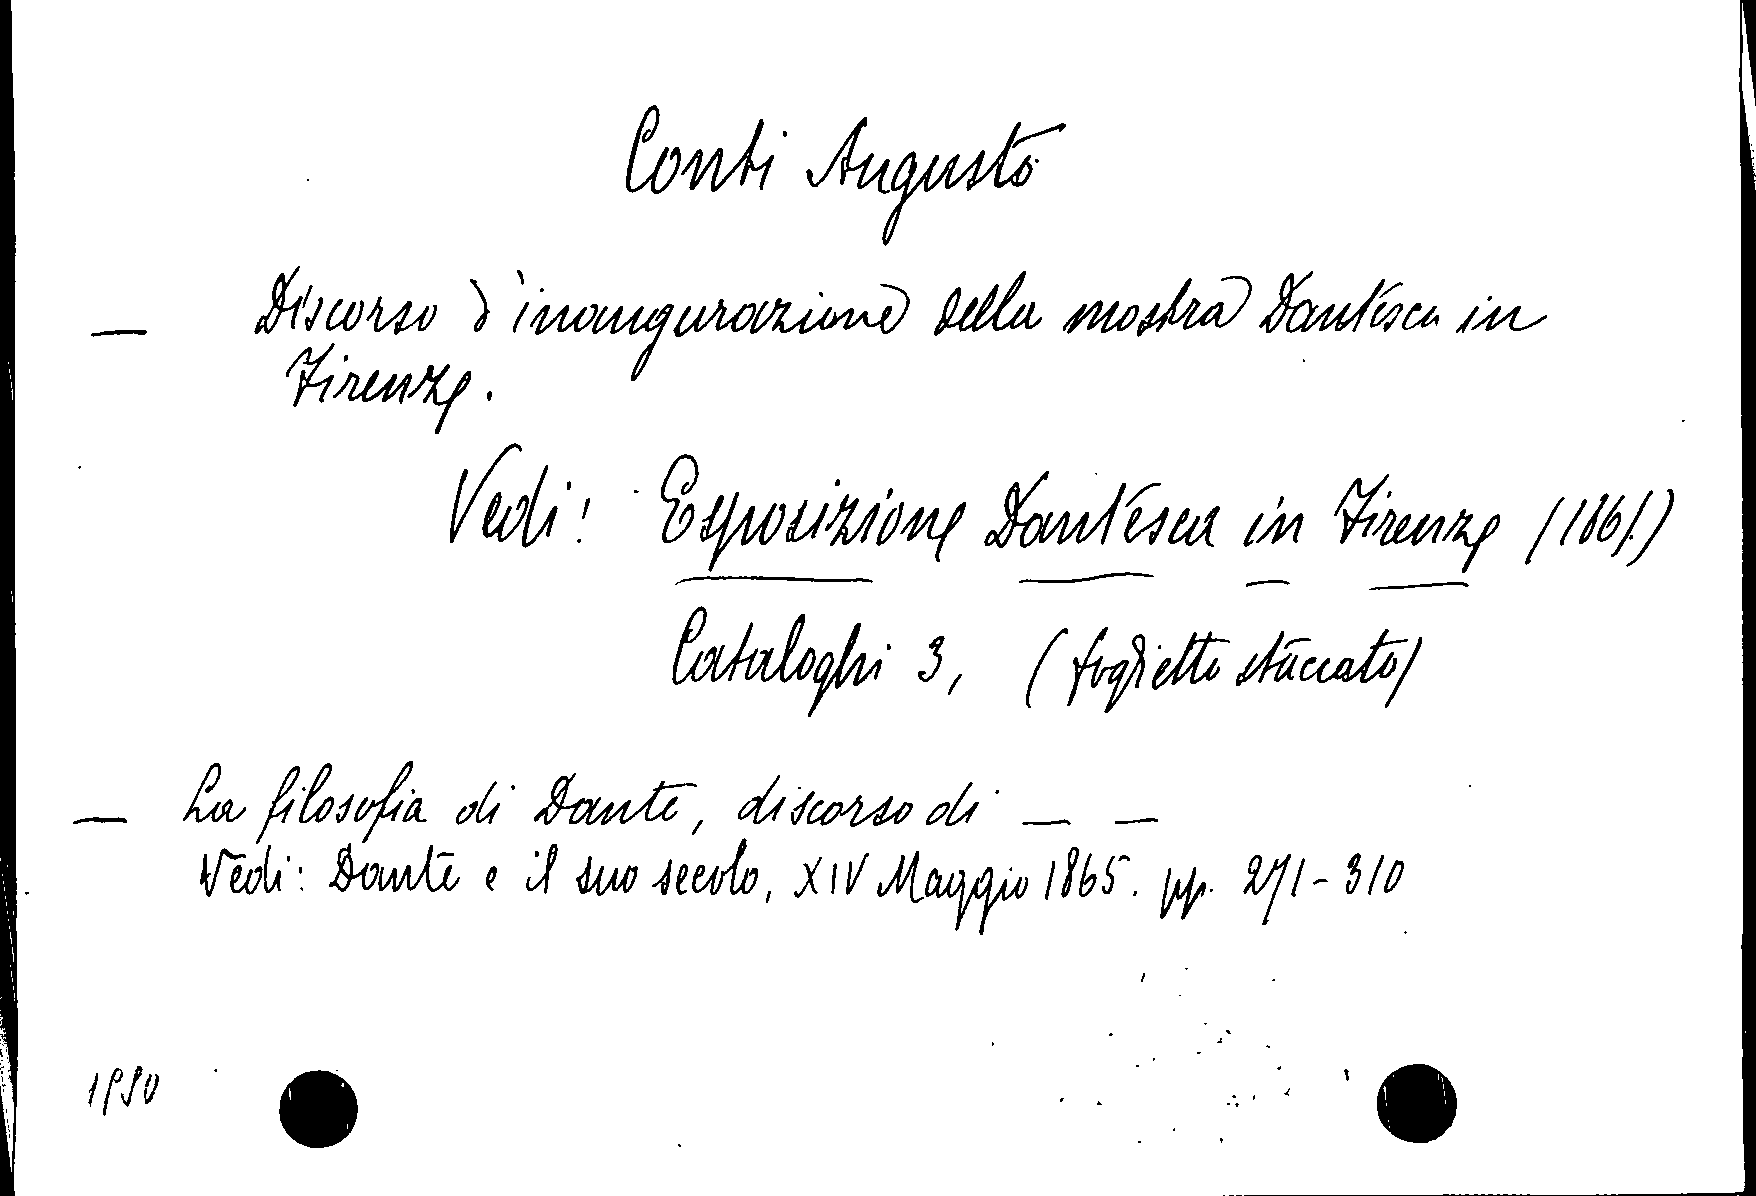 Conti Augusto
— Discorso d'inaugurazione della mostra Dantesca in
Firenze.
Vedi: Esposizione Dantesca in Firenze
Cataloghi 3, (foglietto staccato)
— La filosofia di Dante, discorso di — —
Vedi: Dante e il suo secolo, XIV Maggio 1865. pp. 271-310